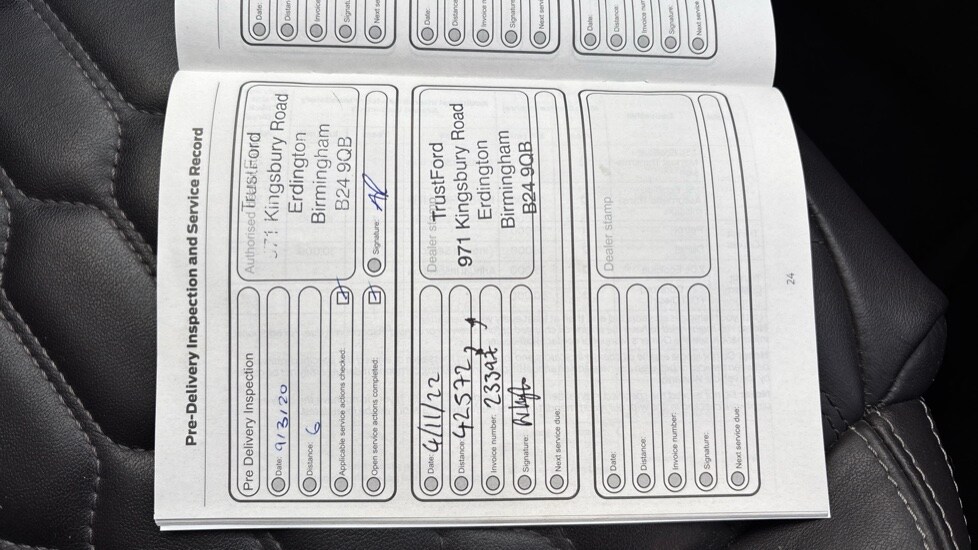 Pre-Delivery Inspection and Service Record
Pre Delivery Inspection
Date: 9/3/20
Distance: 6
Applicable service actions checked:
Open service actions completed:
Authorised
TrustFord
971 Kingsbury Road
Erdington
Birmingham
B24 9QB
Signature:
Date: 4/11/22
Distance: 42572
Invoice number:
Signature:
Next service due:
Dealer stamp
TrustFord
971 Kingsbury Road
Erdington
Birmingham
B24 9QB
Date:
Distance:
Invoice number:
Signature:
Next service due:
Dealer stamp
24
Date:
Invoice
Date:
Distance:
Date:
Distance:
Signature:
Next service